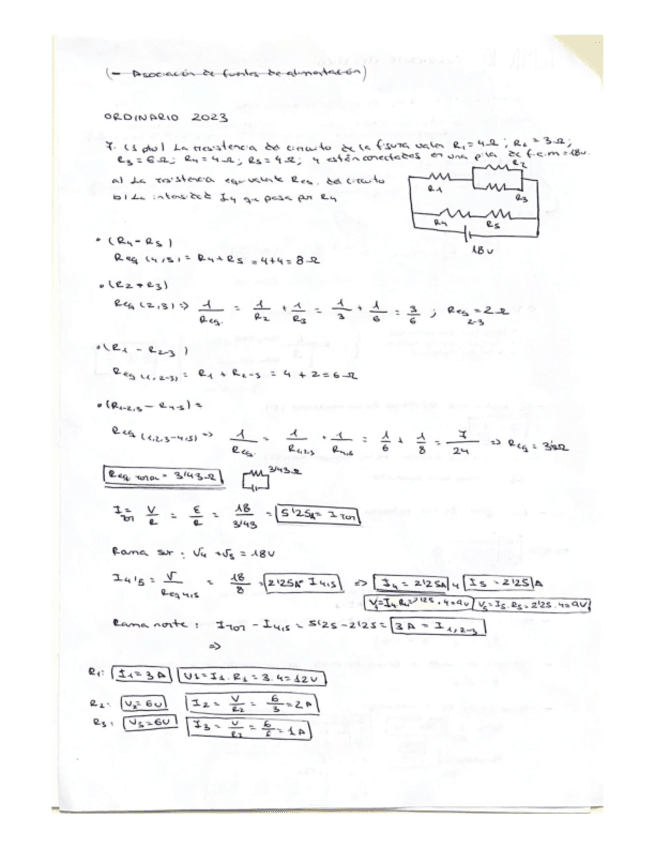 (- Asociación de fuentes de alimentación)
ORDINARIO 2023
7. (1 pto) La resistencia del circuito de la figura valen R1 = 4Ω ; R2 = 3Ω;
R3 = 6Ω; R4 = 4Ω; R5 = 4Ω; y están conectados en una pila de f.e.m = 18v.
a) La resistencia equivalente Req. del circuito
b) La intensidad I4 que pasa por R4
R1
R2
R3
R4
R5
18v
• (R4 - R5)
Req (4,5) = R4 + R5 = 4+4 = 8Ω
• (R2 + R3)
Req (2,3) => 1/Req. = 1/R2 + 1/R3 = 1/3 + 1/6 = 3/6 ; Req 2-3 = 2Ω
• (R1 - R2-3)
Req (1,2-3) = R1 + R2-3 = 4 + 2 = 6Ω
• (R1-2,3 - R4-5) =
Req (1,2,3-4,5) => 1/Req = 1/R1,2,3 + 1/R4,5 = 1/6 + 1/8 = 7/24 => Req =
Req TOTAL = 3'43Ω
3'43Ω
I TOT = V/R = E/R = 18/3'43 = 5'25A = I TOT
Rama sur : V4 + V5 = 18V
I4,5 = V/Req 4,5 = 18/8 = 2'25A = I4,5 => I4 = 2'25A y I5 = 2'25A
V4 = I4 R4 = 2'25 . 4 = 9v V5 = I5 . R5 = 2'25 . 4 = 9V
Rama norte : I TOT - I4,5 = 5'25 - 2'25 = 3A = I1,2-3
=>
R1: I1 = 3A V1 = I1 . R1 = 3 . 4 = 12V
R2: V2 = 6V I2 = V/R2 = 6/3 = 2A
R3: V3 = 6V I3 = V/R3 = 6/6 = 1A